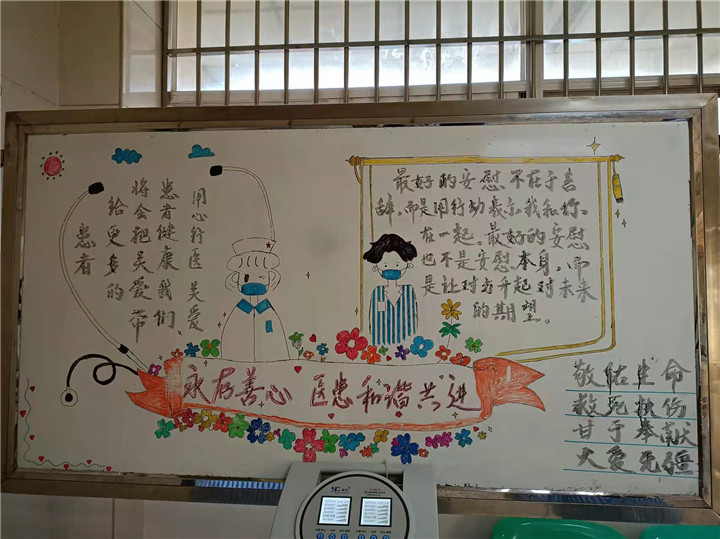 用心行医关爱
患者健康我们、
将会把关爱带
给更多的
患者
最好的安慰不在于言
辞,而是用行动表示,我和你、
在一起。最好的安慰
也不是安慰本身,而
是让对方开起对未来
的期望。
永存善心 医患和谐共进
敬佑生命
救死扶伤
甘于奉献
大爱无疆